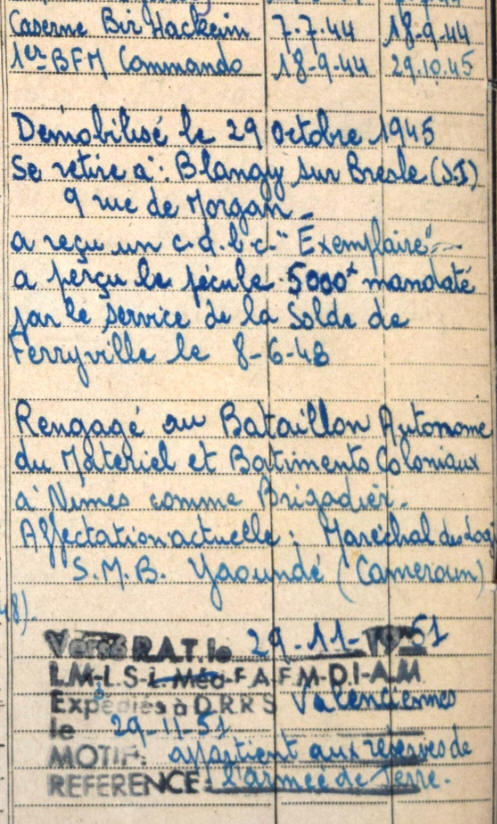 Caserne Bir Hackeim 7.7.44 18-9-44
1er BFM Commando 18-9-44 29.10.45
Démobilisé le 29 octobre 1945
Se retire à : Blangy sur Bresle (S.I)
9 rue de Morgan -
a reçu un c.d.b.c. "Exemplaire"
a perçu le pécule 5000 mandaté
par le Service de la Solde de
Ferryville le 8-6-48
Rengagé au Bataillon Autonome
du Matériel et Batiments Coloniaux
à Nimes comme Brigadier.
Affectation actuelle : Maréchal des Log
S.M.B. Yaoundé (Cameroun)
48).
Versé R.A.T. le 29-11-1951
L.M-I.S-L-Méd-F-A-F-M-D-I-A-M
Expédiés à D.R.R.S Valenciennes
le 29-11-51
MOTIF: appartient aux réserves de
REFERENCE: l'armée de Terre.